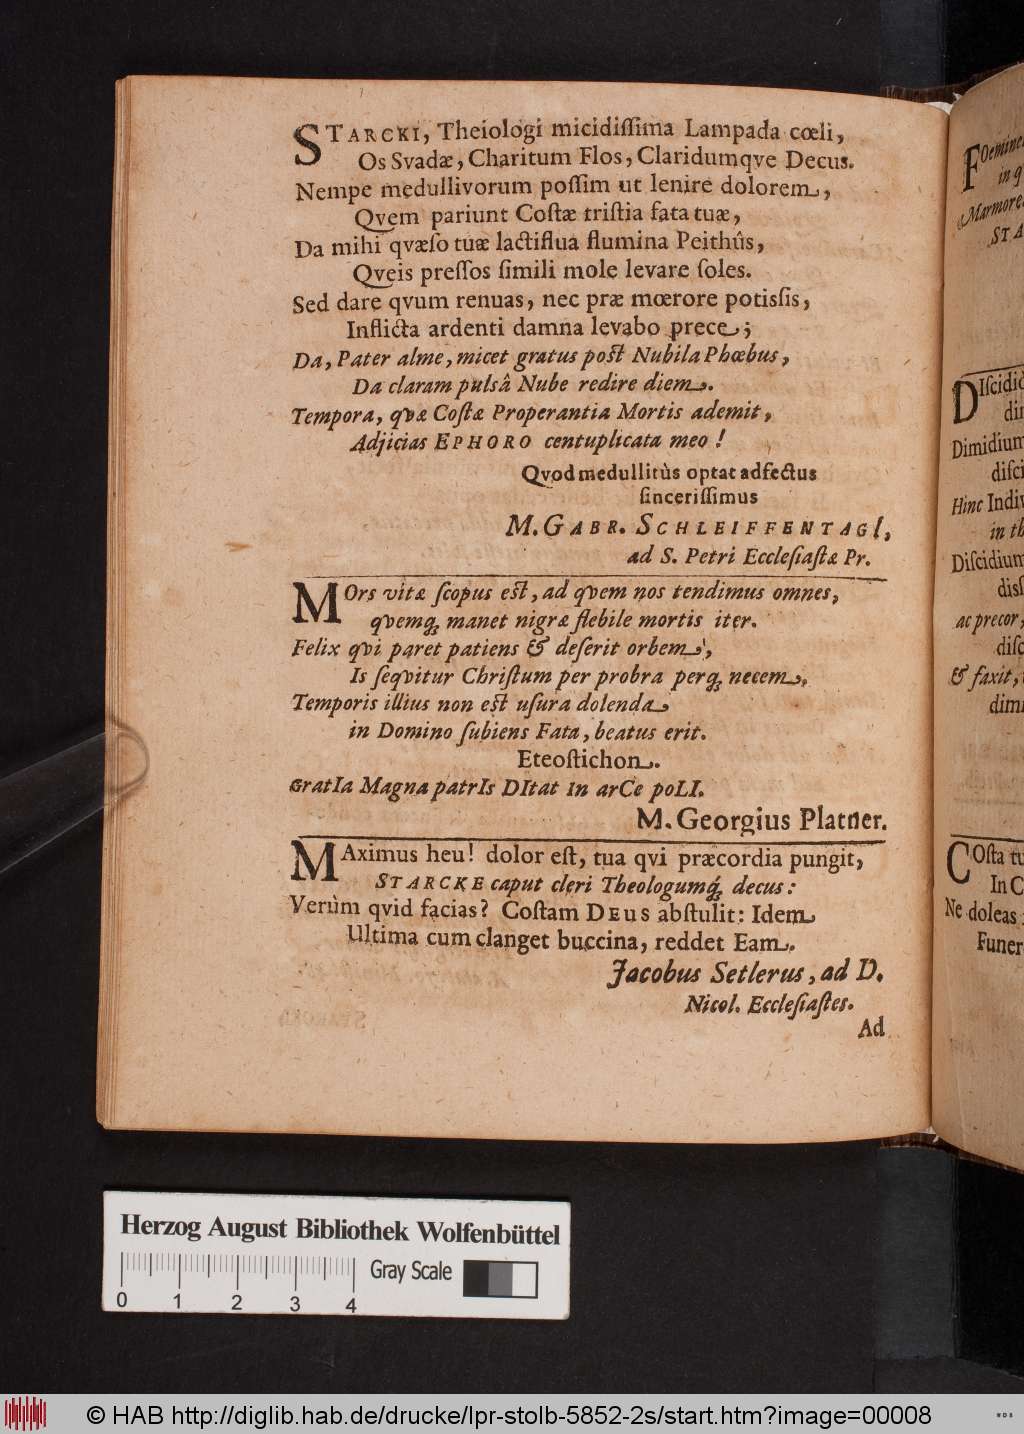 STARCKI, Theiologi micidiſſima Lampada cœli,
Os Svadæ, Charitum Flos, Claridumqve Decus.
Nempe medullivorum poſſim ut lenire dolorem,
Qvem pariunt Coſtæ triſtia fata tuæ,
Da mihi qvæſo tuæ lactiflua flumina Peithûs,
Qveis preſſos ſimili mole levare ſoles.
Sed dare qvum renuas, nec præ mœrore potisſis,
Inflicta ardenti damna levabo prece;
Da, Pater alme, micet gratus poſt Nubila Phœbus,
Da claram pulsâ Nube redire diem.
Tempora, qvæ Coſtæ Properantia Mortis ademit,
Adjicias EPHORO centuplicata meo!
Qvod medullitùs optat adfectus
ſinceriſſimus
M. GABR. SCHLEIFFENTAGl,
ad S. Petri Eccleſiaſtæ Pr.
MOrs vitæ ſcopus eſt, ad qvem nos tendimus omnes,
qvemq; manet nigræ flebile mortis iter.
Felix qvi paret patiens & deſerit orbem,
Is ſeqvitur Chriſtum per probra perq; necem.
Temporis illius non eſt uſura dolenda
in Domino ſubiens Fata, beatus erit.
Eteoſtichon.
GratIa Magna patrIs DItat In arCe poLI.
M. Georgius Platner.
MAximus heu! dolor eſt, tua qvi præcordia pungit,
STARCKE caput cleri Theologumq́; decus:
Verùm qvid facias? Coſtam DEUS abſtulit: Idem
Ultima cum clanget buccina, reddet Eam.
Jacobus Setlerus, ad D.
Nicol. Eccleſiaſtes.
Ad
in q
Marmore
STA
DIſcidi
Dimidium
diſci
Hinc Indiv
in th
Diſcidium
ac precor,
diſc
& faxit,
dimi
COſta tu
In C
Ne doleas
Funer
Herzog August Bibliothek Wolfenbüttel
Gray Scale
0 1 2 3 4
© HAB http://diglib.hab.de/drucke/lpr-stolb-5852-2s/start.htm?image=00008